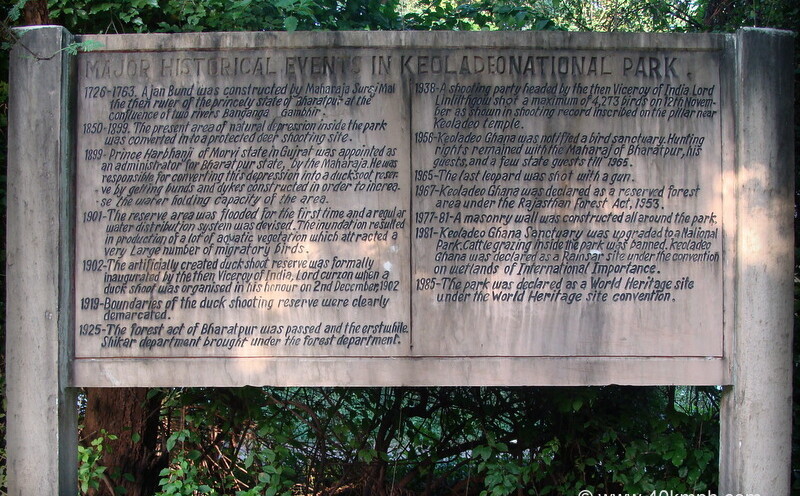 MAJOR HISTORICAL EVENTS IN KEOLADEONATIONAL PARK.
1726-1763. Ajan Bund was constructed by Maharaja Surej Mal
the then ruler of the princely state of Bharatpur at the
confluence of two rivers Banganga Gambhir.
1850-1899. The present area of natural depression inside the park
was converted into a protected deer shooting site.
1899-Prince Harbhanji of Morvi state in Gujrat was appointed as
an administrator for Bharatpur state, by the Maharaja. He was
responsible for converting this depression into a duckshoot reser-
ve by getting bunds and dykes constructed in order to increa-
se the water holding capacity of the area.
1901-The reserve area was flooded for the first time and a regular
water distribution system was devised. The inundation resulted
in production of a lot of aquatic vegetation which attracted a
very Large number of migratory birds.
1902-The artificially created duck shoot reserve was formally
inaugurated by the then Viceroy of India, Lord curzon when a
duck shoot was organised in his honour on 2nd December, 1902
1919-Boundaries of the duck shooting reserve were clearly
demarcated.
1925-The forest act of Bharatpur was passed and the erstwhile
Shikar department brought under the forest department.
1938-A shooting party headed by the then Viceroy of India Lord
Linlithgow shot a maximum of 4,273 birds on 12th Novem-
ber as shown in shooting record inscribed on the pillar near
Keoladeo temple.
1956-Keoladeo Ghana was notified a bird sanctuary. Hunting
rights remained with the Maharaj of Bharatpur, his
guests, and a few state guests till 1965.
1965-The last leopard was shot with a gun.
1967-Keoladeo Ghana was declared as a reserved forest
area under the Rajasthan Forest Act, 1953.
1977-81-A masonry wall was constructed all around the park.
1981-Keoladeo Ghana Sanctuary was upgraded to a National
Park. Cattle grazing inside the park was banned. Keoladeo
Ghana was declared as a Ramsar site under the convention
on wetlands of International Importance.
1985-The park was declared as a World Heritage site
under the World Heritage site convention.
© www.40kmph.com